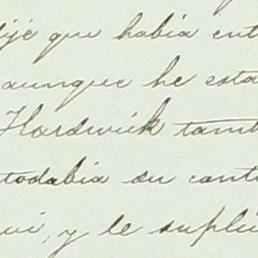 ije que habia ent
aunque he esta
Hardwick tamb
todabia su cont
ui, y le suplic